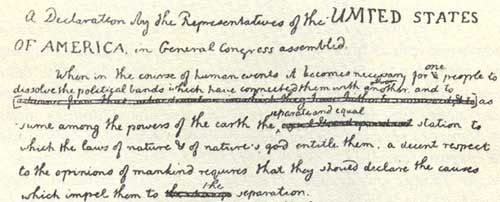 A Declaration by the Representatives of the UNITED STATES
OF AMERICA, in General Congress assembled.
When in the course of human events it becomes necessary for one people to
dissolve the political bands which have connected them with another, and to
as
separate and equal
sume among the powers of the earth the station to
which the laws of nature & of nature's god entitle them, a decent respect
to the opinions of mankind requires that they should declare the causes
the
which impel them to separation.